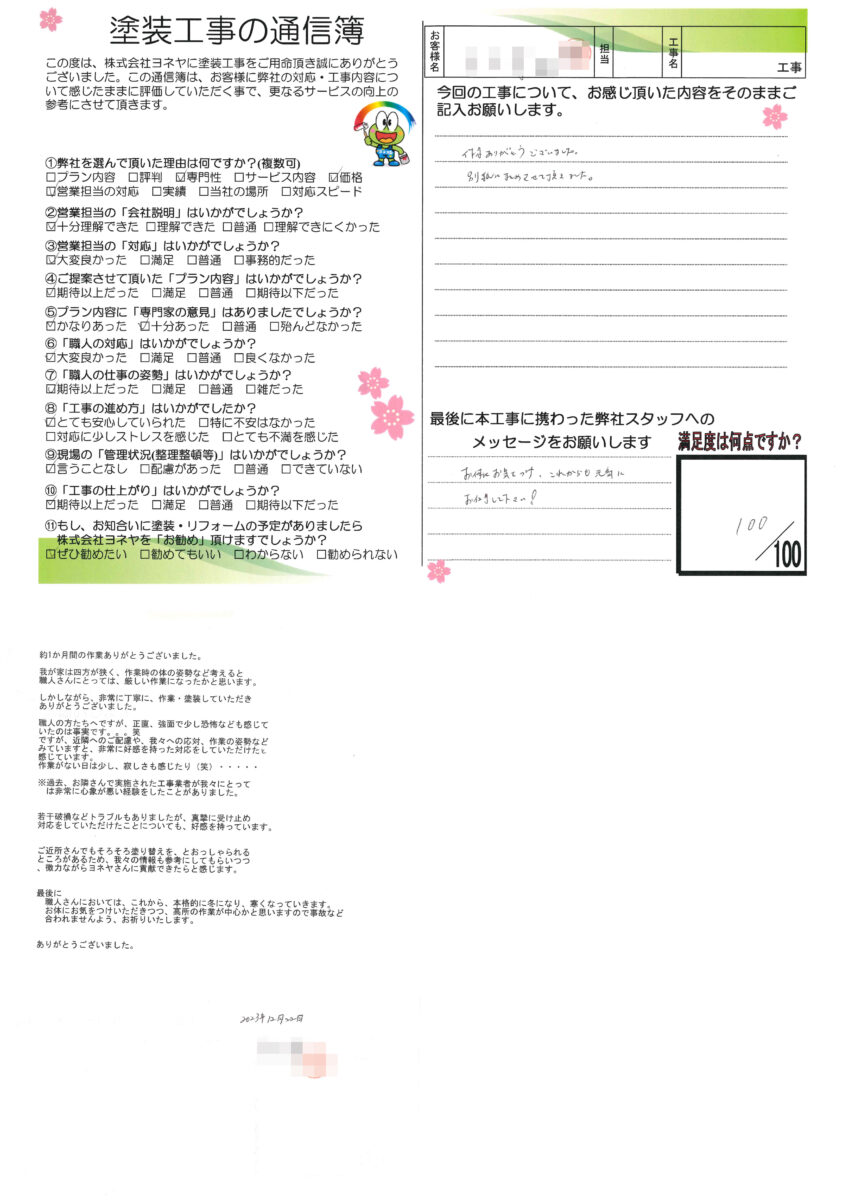 塗装工事の通信簿
この度は、株式会社ヨネヤに塗装工事をご用命頂き誠にありがとう
ございました。この通信簿は、お客様に弊社の対応・工事内容につ
いて感じたままに評価していただく事で、更なるサービスの向上の
参考にさせて頂きます。
①弊社を選んで頂いた理由は何ですか？(複数可)
□プラン内容 □評判 ☑専門性 □サービス内容 ☑価格
☑営業担当の対応 □実績 □当社の場所 □対応スピード
②営業担当の「会社説明」はいかがでしょうか？
☑十分理解できた □理解できた □普通 □理解できにくかった
③営業担当の「対応」はいかがでしょうか？
☑大変良かった □満足 □普通 □事務的だった
④ご提案させて頂いた「プラン内容」はいかがでしょうか？
☑期待以上だった □満足 □普通 □期待以下だった
⑤プラン内容に「専門家の意見」はありましたでしょうか？
☑かなりあった ☑十分あった □普通 □殆んどなかった
⑥「職人の対応」はいかがでしょうか？
☑大変良かった □満足 □普通 □良くなかった
⑦「職人の仕事の姿勢」はいかがでしょうか？
☑期待以上だった □満足 □普通 □雑だった
⑧「工事の進め方」はいかがでしたか？
☑とても安心していられた □特に不安はなかった
□対応に少しストレスを感じた □とても不満を感じた
⑨現場の「管理状況(整理整頓等)」はいかがでしょうか？
☑言うことなし □配慮があった □普通 □できていない
⑩「工事の仕上がり」はいかがでしょうか？
☑期待以上だった □満足 □普通 □期待以下だった
⑪もし、お知合いに塗装・リフォームの予定がありましたら
株式会社ヨネヤを「お勧め」頂けますでしょうか？
☑ぜひ勧めたい □勧めてもいい □わからない □勧められない
お客様名
担当
工事名
工事
今回の工事について、お感じ頂いた内容をそのままご
記入お願いします。
作業ありがとうございました。
別紙にまとめさせて頂きました。
最後に本工事に携わった弊社スタッフへの
メッセージをお願いします
満足度は何点ですか？
お体にお気をつけ、これからも元気に
お仕事して下さい！
100
/100
約1か月間の作業ありがとうございました。
我が家は四方が狭く、作業時の体の姿勢など考えると
職人さんにとっては、厳しい作業になったかと思います。
しかしながら、非常に丁寧に、作業・塗装していただき
ありがとうございました。
職人の方たちへですが、正直、強面で少し恐怖なども感じて
いたのは事実です。。。笑
ですが、近隣へのご配慮や、我々への応対、作業の姿勢など
みていますと、非常に好感を持った対応をしていただけたし
感じています。
作業がない日は少し、寂しさも感じたり（笑）・・・・・
※過去、お隣さんで実施された工事業者が我々にとって
は非常に心象が悪い経験をしたことがありました。
若干破損などトラブルもありましたが、真摯に受け止め
対応をしていただけたことについても、好感を持っています。
ご近所さんでもそろそろ塗り替えを、とおっしゃられる
ところがあるため、我々の情報も参考にしてもらいつつ
、微力ながらヨネヤさんに貢献できたらと感じます。
最後に
職人さんにおいては、これから、本格的に冬になり、寒くなっていきます。
お体にお気をつけいただきつつ、高所の作業が中心かと思いますので事故など
合われませんよう、お祈りいたします。
ありがとうございました。
2023年12月20日